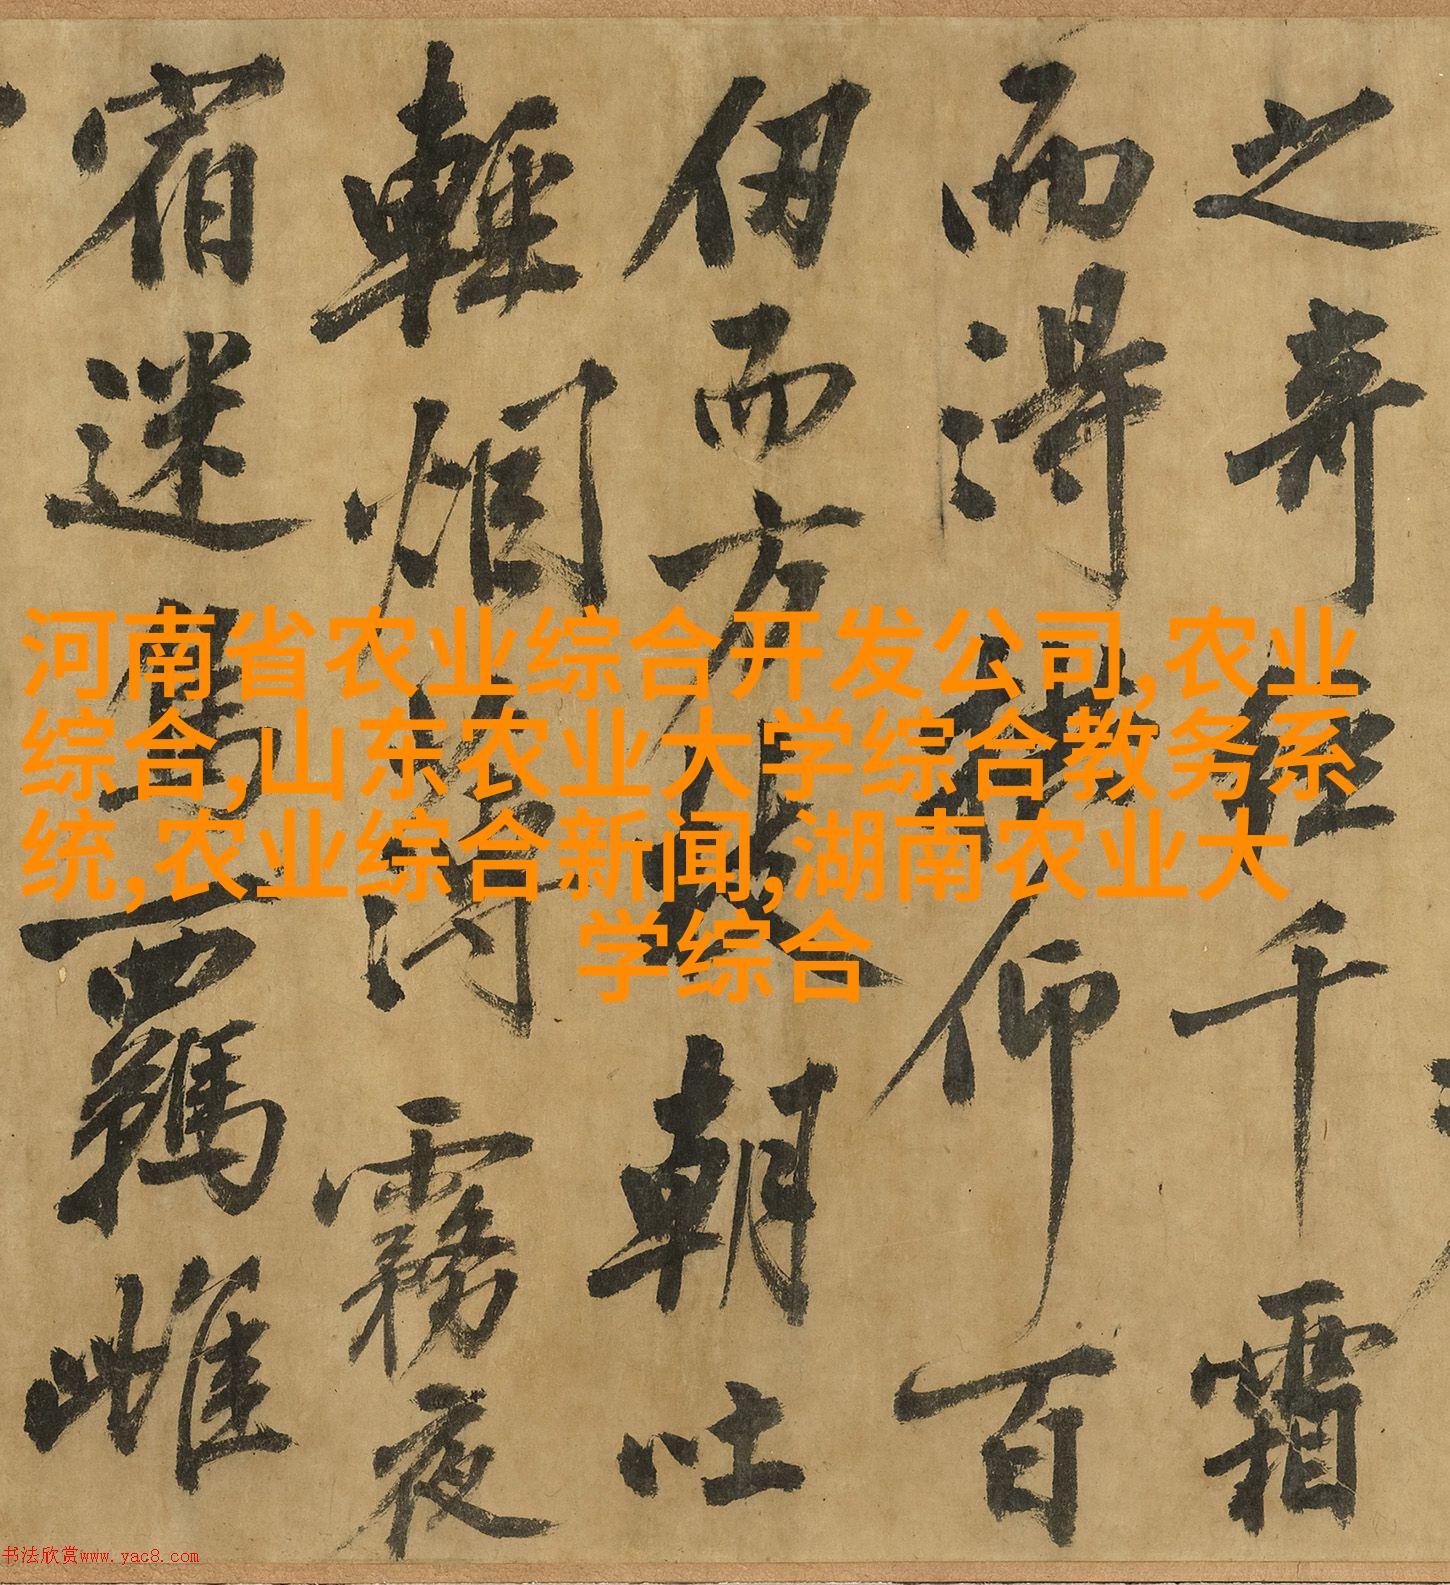 河南省农业综合开发公司,农业
综合,山东农业大学综合教务系
统,农业综合新闻,湖南农业大
学综合
之奇經千霜
而得拱仰百
仞而方枝朝吐
輕烟薄霧夜
宿迷鳥羈雌
书法欣赏www.yac8.com